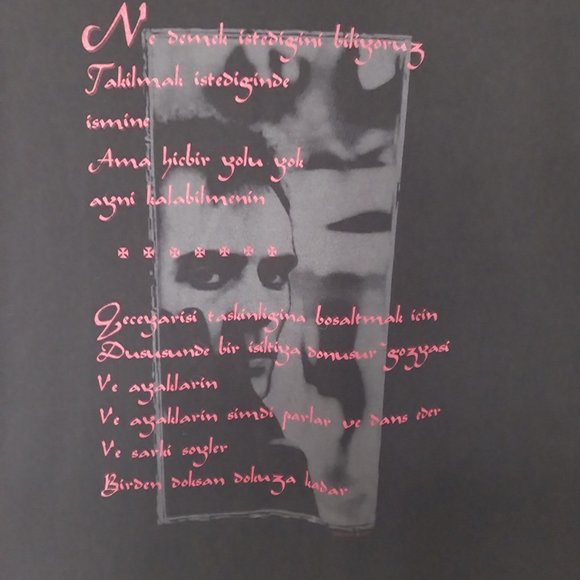 Ne demek istedigini biliyoruz
Takilmak istediginde
ismine
Ama hicbir yolu yok
ayni kalabilmenin
Geceyarisi taskinligina bosaltmak icin
Dususunde bir isiltiya donusur gozyasi
Ve ayaklarin
Ve ayaklarin simdi parlar ve dans eder
Ve sarki soyler
Birden doksan dokuza kadar